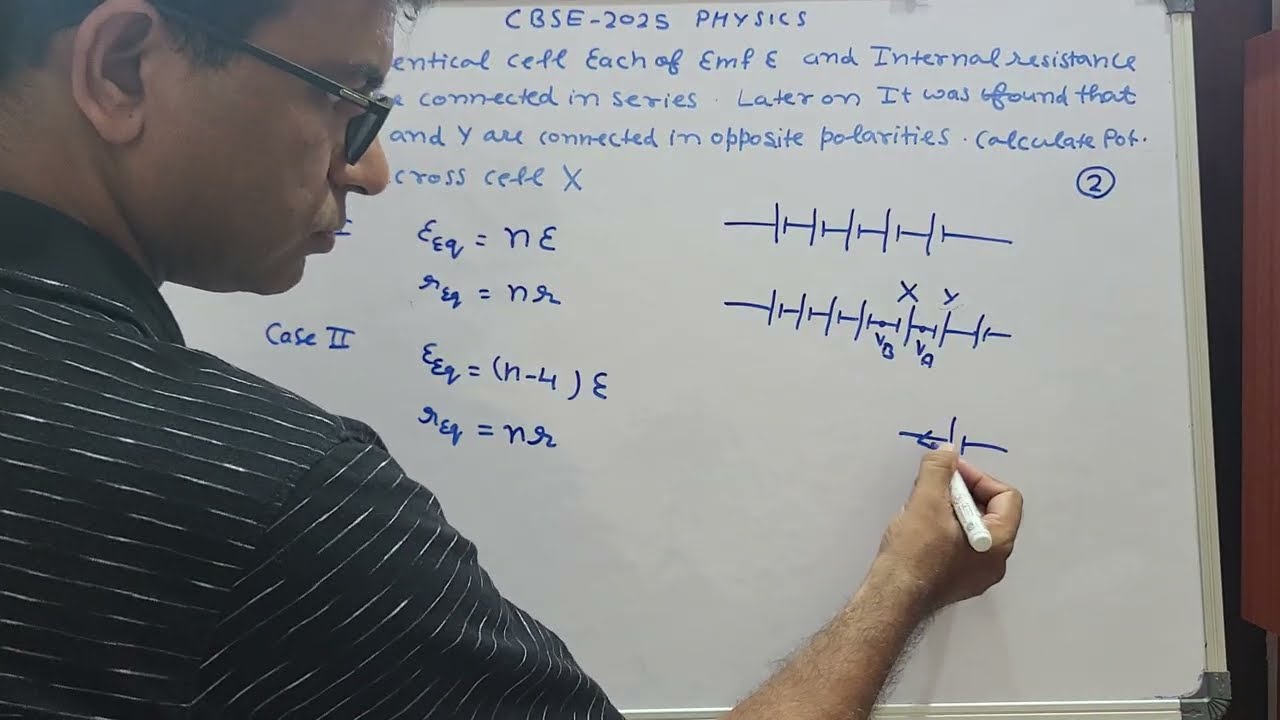 CBSE-2025 PHYSICS
entical cell Each of Emf ε and Internal resistance
connected in series. Later on It was found that
and Y are connected in opposite polarities. Calculate Pot.
cross cell X
2
I
ε Eq = nε
r Eq = nr
X Y
V B V A
Case II
ε Eq = (n-4) ε
r Eq = nr